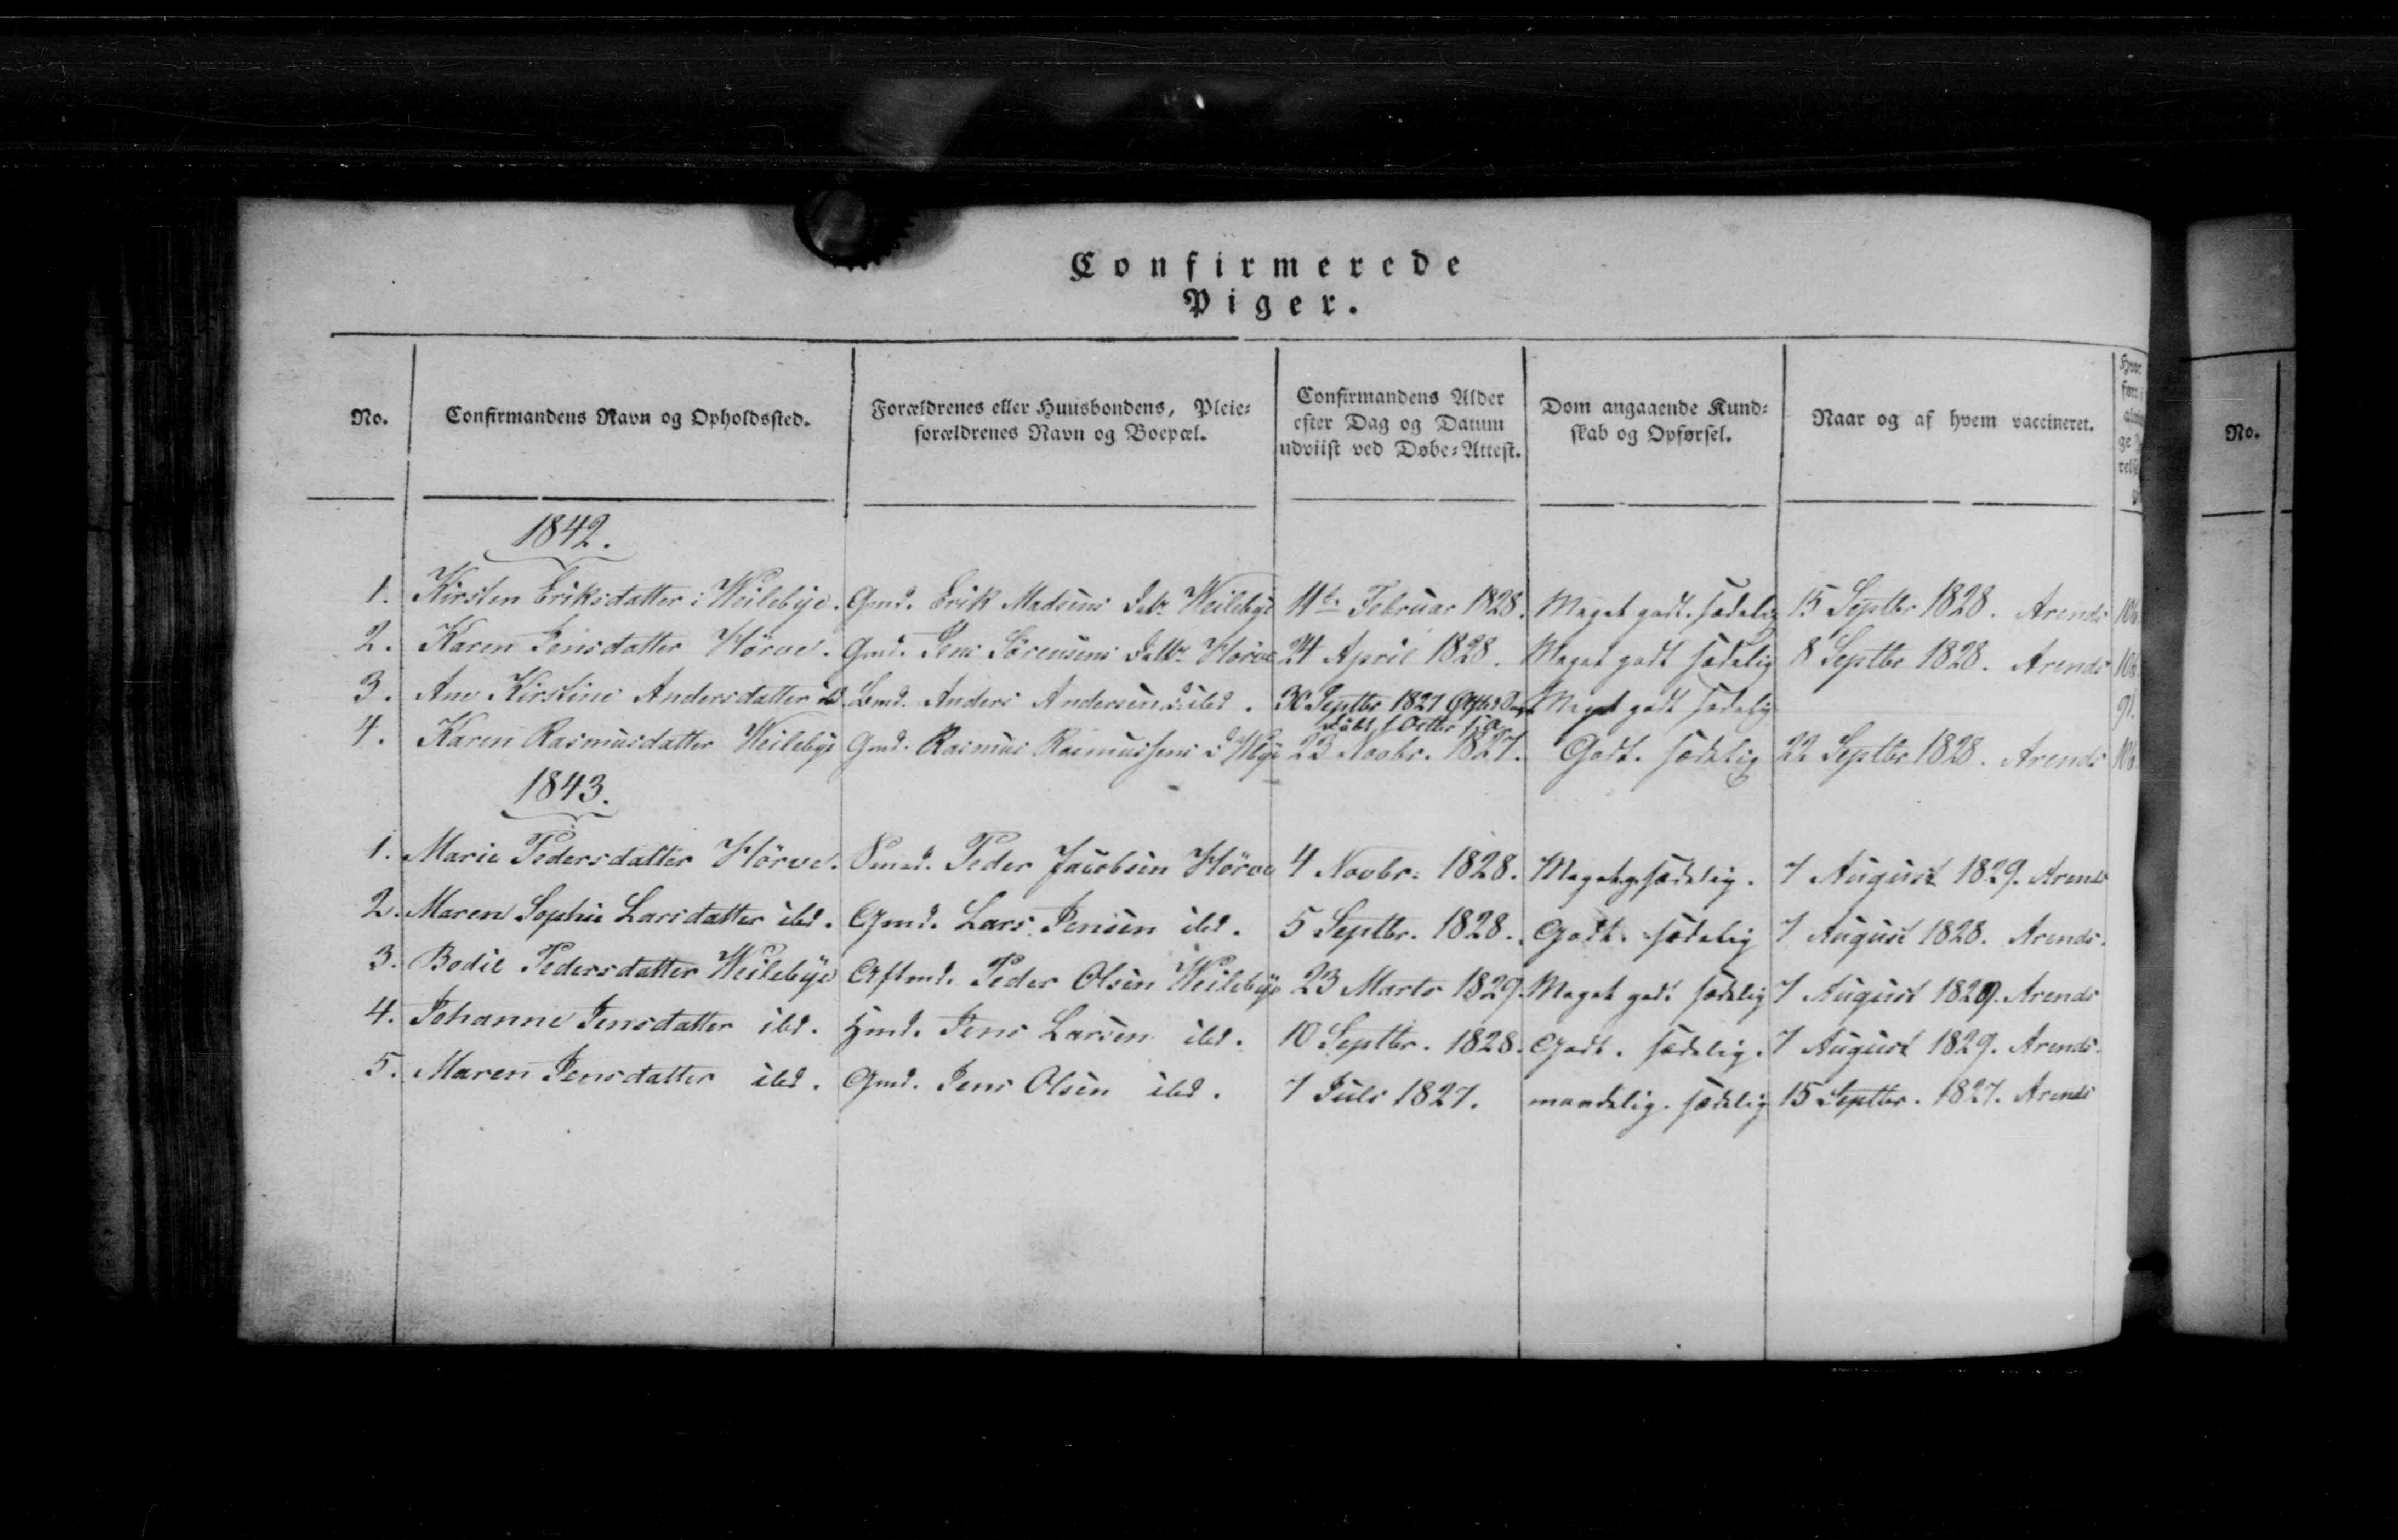 Confirmerede
Piger.
No. Confirmandens Navn og Opholdssted. Forældrenes eller Huusbondens, Pleie- Confirmandens Alder Dom angaaende Kund- Naar og af hvem vaccineret. No.
forældrenes Navn og Boepæl. efter Dag og Datum skab og Opførsel.
udviist ved Døbe-Attest.
1842.
1. Kirsten Eriksdatter i Weilebÿe. Gmd. Erik Madsens Weilebÿe 11te Februar 1828. Meget godt. sædelig 15 Septbr 1828. Arends 106.
2. Karen Jensdatter Hörve. Gmd. Jens Sörensens Hörve 24 April 1828. Meget godt sædelig 8 Septbr 1828. Arends
3. Ane Kirstine Andersdatter Anders Andersens ibd. 30 Septbr 1827 Meget godt sædelig 91.
4. Karen Rasmusdatter Weilebÿe Gmd. Rasmus Rasmussens 23 Novbr. 1827. Godt. sædelig 22 Septbr 1828. Arends
1843.
1. Marie Pedersdatter Hörve. Peder Jacobsen Hörve 4 Novbr. 1828. Meget g. sædelig. 7 August 1829. Arends
2. Maren Sophie Larsdatter ibd. Gmd. Lars Jensen ibd. 5 Septbr. 1828. Godt. sædelig 7 August 1828. Arends.
3. Bodil Pedersdatter Weilebÿe Aftmd. Peder Olsen Weilebÿe 23 Marts 1829. Meget godt sædelig 7 August 1829. Arends
4. Johanne Jensdatter ibd. Hmd. Jens Larsen ibd. 10 Septbr. 1828. Godt. sædelig. 7 August 1829. Arends.
5. Maren Jensdatter ibd. Gmd. Jens Olsen ibd. 7 Juli 1827. maadelig. sædelig 15 Septbr. 1827. Arends